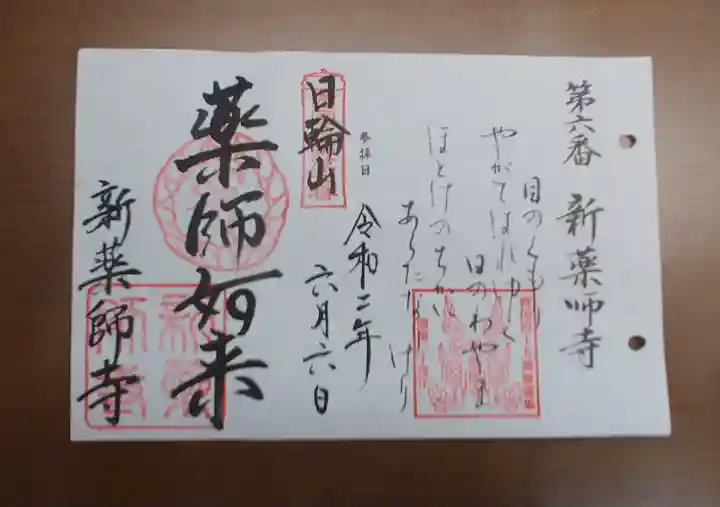 第六番 新薬師寺
目のくもり
やがてはれゆく
日のわやま
ほとけのちかい
あらたなりけり
参拝日
令和二年
六月六日
日輪山
薬師如来
新薬師寺